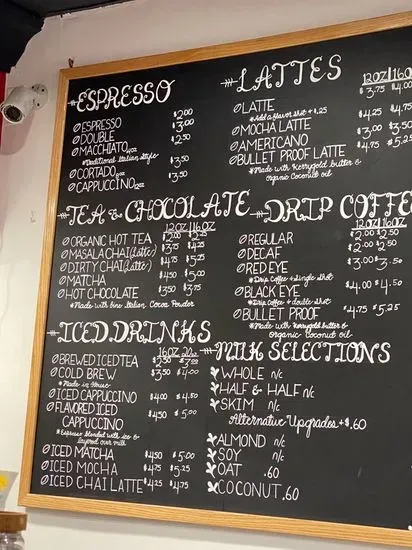 ESPRESSO
ESPRESSO $2.00
DOUBLE $3.00
MACCHIATO $2.50
*Traditional Italian Style
CORTADO $3.50
CAPPUCCINO $3.50
TEA & CHOCOLATE
12OZ 16OZ
ORGANIC HOT TEA $2.00 $2.25
MASALA CHAI (Latte) $3.75 $4.25
DIRTY CHAI (Latte) $4.75 $5.25
MATCHA $4.50 $5.00
HOT CHOCOLATE $3.50 $3.75
*Made with fine Italian Cocoa Powder
ICED DRINKS
16OZ 20oz
BREWED ICED TEA $2.50 $3.00
*Made in House
COLD BREW $3.50 $4.00
ICED CAPPUCCINO $4.00 $4.50
FLAVORED ICED
CAPPUCCINO $4.50 $5.00
*Espresso blended with ice &
layered over milk
ICED MATCHA $4.50 $5.00
ICED MOCHA $4.75 $5.25
ICED CHAI LATTE $4.25 $4.75
LATTES
12OZ 16OZ
LATTE $3.75 $4.00
*Add a flavor shot +$.25
MOCHA LATTE $4.25 $4.75
AMERICANO $3.00 $3.50
BULLET PROOF LATTE $4.75 $5.25
*Made with Kerrygold butter &
Organic Coconut oil
DRIP COFFE
12OZ 16OZ
REGULAR $2.00 $2.50
DECAF $2.00 $2.50
RED EYE $3.00 $3.50
*Drip Coffee + single shot
BLACK EYE $4.00 $4.50
*Drip coffee + double shot
BULLET PROOF $4.75 $5.25
*Made with Kerrygold butter &
Organic Coconut oil
MILK SELECTIONS
WHOLE n/c
HALF & HALF n/c
SKIM n/c
Alternative Upgrades +$.60
ALMOND n/c
SOY n/c
OAT .60
COCONUT .60